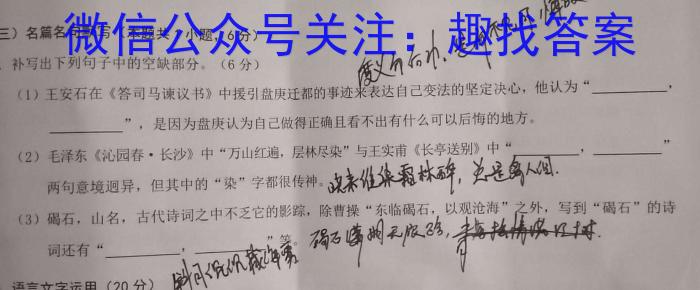 三）名篇名句默写（本题共1小题，6分）
微信公众号关注：趣找答案
补写出下列句子中的空缺部分。（6分）
（1）王安石在《答司马谏议书》中援引盘庚迁都的事迹来表达自己变法的坚定决心，他认为“__________，
__________”，是因为盘庚认为自己做得正确且看不出有什么可以后悔的地方。
（2）毛泽东《沁园春·长沙》中“万山红遍，层林尽染”与王实甫《长亭送别》中“__________，__________”
两句意境迥异，但其中的“染”字都很传神。晓来谁染霜林醉，总是离人泪.
（3）碣石，山名，古代诗词之中不乏它的影踪，除曹操“东临碣石，以观沧海”之外，写到“碣石”的诗
词还有“__________，__________”等。碣石潇湘无限路
语言文字运用（20分）